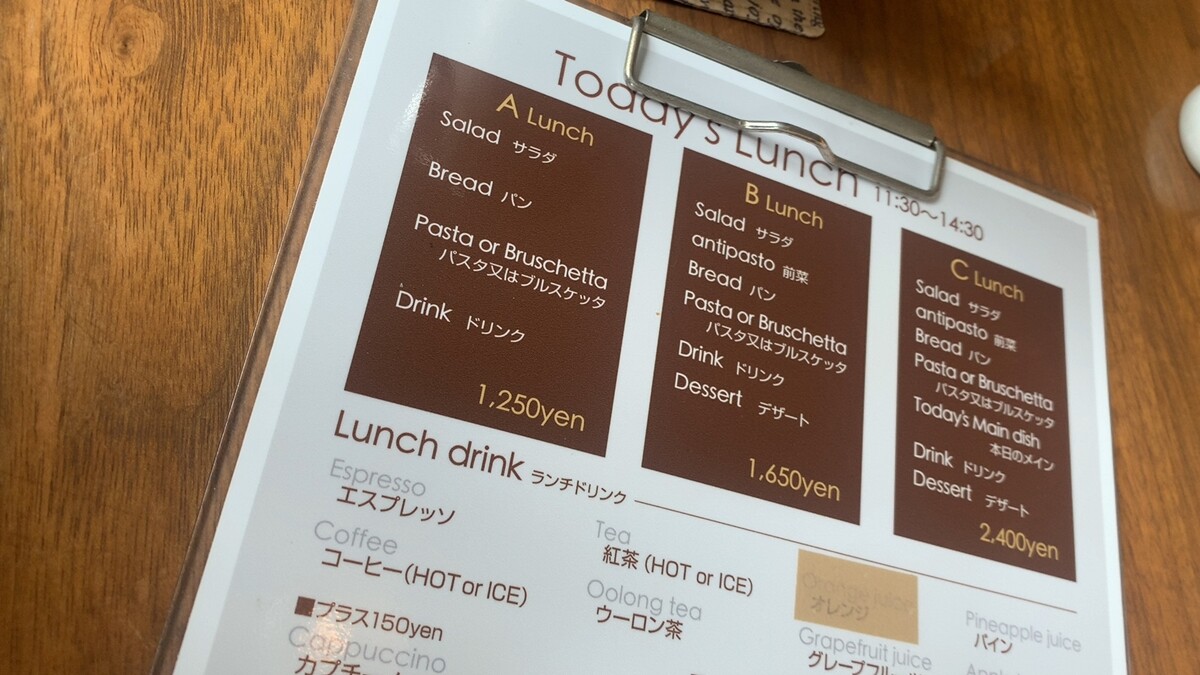 Today's Lunch 11:30～14:30
A Lunch
Salad サラダ
Bread パン
Pasta or Bruschetta
パスタ又はブルスケッタ
Drink ドリンク
1,250yen
B Lunch
Salad サラダ
antipasto 前菜
Bread パン
Pasta or Bruschetta
パスタ又はブルスケッタ
Drink ドリンク
Dessert デザート
1,650yen
C Lunch
Salad サラダ
antipasto 前菜
Bread パン
Pasta or Bruschetta
パスタ又はブルスケッタ
Today's Main dish
本日のメイン
Drink ドリンク
Dessert デザート
2,400yen
Lunch drink ランチドリンク
Espresso
エスプレッソ
Coffee
コーヒー(HOT or ICE)
■プラス150yen
Cappuccino
カプチ
Tea
紅茶 (HOT or ICE)
Oolong tea
ウーロン茶
オレンジ
Grapefruit juice
グレープフル
Pineapple juice
パイン